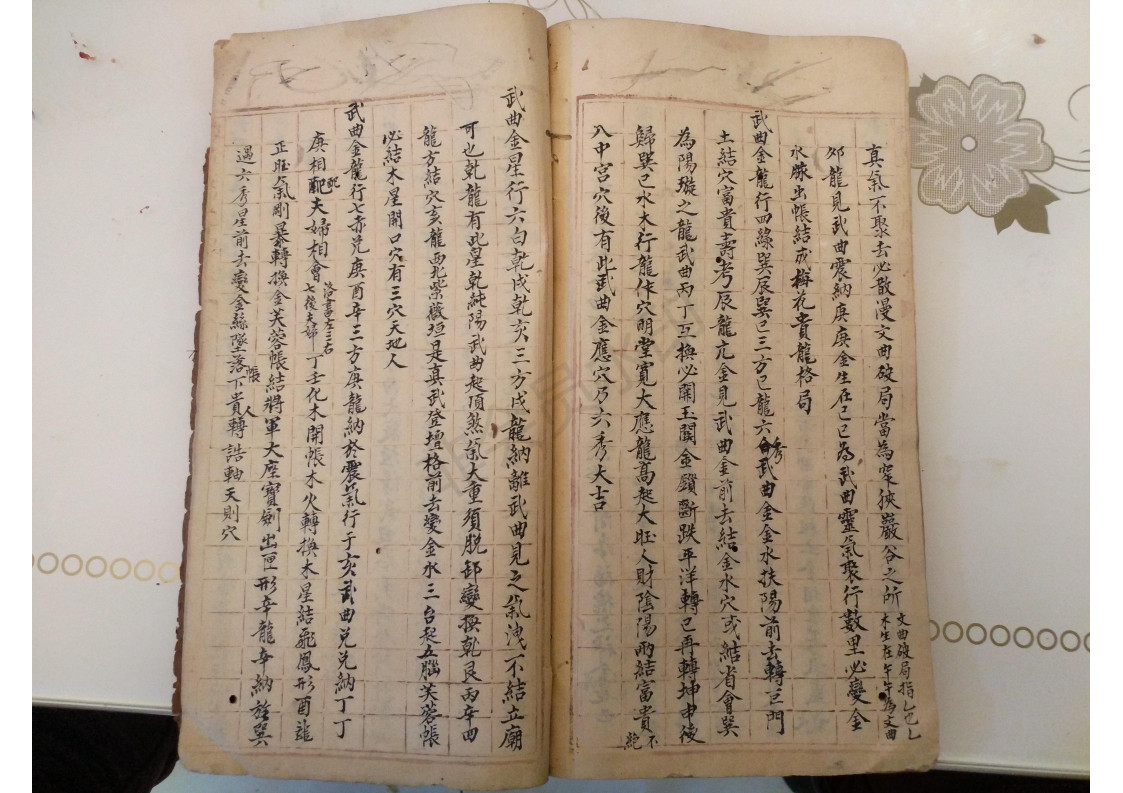 真氣不聚去必散漫文曲破局當為窄狹巖谷之所文曲破局指乙也乙木生在午午為文曲
夘龍見武曲震納庚庚金生在巳巳為武曲靈氣聚行數里必變金
水脉出帳結成梅花貴龍格局
武曲金龍行四綠巽辰巽巳三方巳龍六秀武曲金金水扶陽前去轉巨門
土結穴富貴壽考辰龍亢金見武曲金前去結金水穴或結省會巽
為陽璇之龍武曲丙丁互換必開玉關金鎖斷跌平洋轉巳再轉坤申後
歸巽巳水木行龍作穴明堂寬大應龍高起大旺人財陰陽兩結富貴不絕
八中宮穴後有此武曲金應穴乃六秀大吉
武曲金星行六白乾戌乾亥三方戌龍納離武曲見之氣洩不結立廟
可也乾龍有此星乾純陽武曲起頂煞氣大重須脫卸變換乾艮丙辛四
龍方結穴亥龍西北紫薇垣是真武登壇格前去變金水三台起五腦芙蓉帳
必結木星開口穴有三穴天地人
武曲金龍行七赤兌庚酉辛三方庚龍納於震氣行于亥武曲兌兌納丁丁
庚相配夫婦相會洛書左三右七後夫婦丁壬化木開帳木火轉換木星結飛鳳形酉龍
正旺氣剛暴轉換金芙蓉帳結將軍大座寶劍出匣形辛龍辛納於巽
遇六秀星前去變金絲墜落帳下貴人轉誥軸天則穴